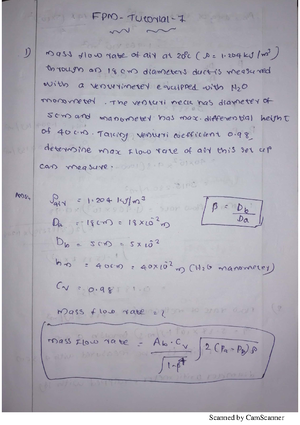 FPM- Tutorial-7
1) mass flow rate of air at 20°c (ρ = 1.204 kg/m³)
through an 18 cm diameters duct is measured
with a venturimeter equipped with H₂O
manometer. The venturi neck has diameter of
5cm and manometer has max. differential height
of 40cm. Taking venturi coefficient 0.98,
determine max flow rate of air this set up
can measure.
Ans.
ρair = 1.204 kg/m³
Da = 18cm = 18×10⁻² m
Db = 5cm = 5×10⁻²
hm = 40cm = 40×10⁻² m (H₂O manometer)
Cv = 0.98
β = Db/Da
mass flow rate = ?
mass flow rate = Ab·Cv/√(1-β⁴) √(2(Pa-Pb)ρ)
Scanned by CamScanner